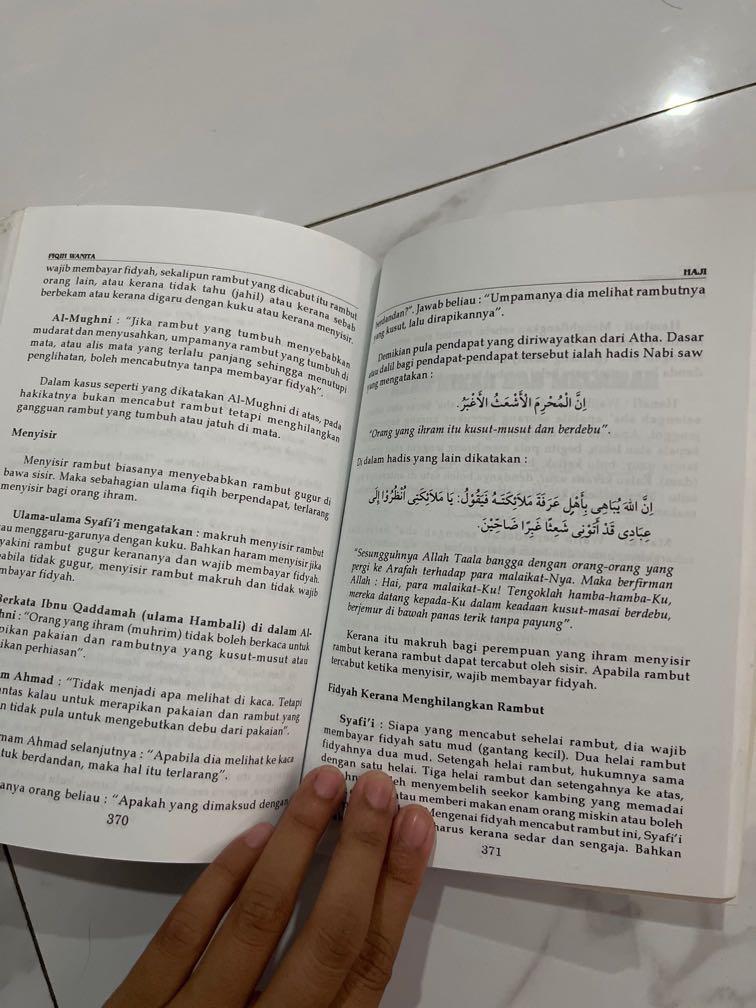 FIQIH WANITA
wajib membayar fidyah, sekalipun rambut yang dicabut itu rambut
orang lain, atau kerana tidak tahu (jahil) atau kerana sebab
berbekam atau kerana digaru dengan kuku atau kerana menyisir.
Al-Mughni : “Jika rambut yang tumbuh menyebabkan
mudarat dan menyusahkan, umpamanya rambut yang tumbuh di
mata, atau alis mata yang terlalu panjang sehingga menutupi
penglihatan, boleh mencabutnya tanpa membayar fidyah”.
Dalam kasus seperti yang dikatakan Al-Mughni di atas, pada
hakikatnya bukan mencabut rambut tetapi menghilangkan
gangguan rambut yang tumbuh atau jatuh di mata.
Menyisir
Menyisir rambut biasanya menyebabkan rambut gugur di
bawa sisir. Maka sebahagian ulama fiqih berpendapat, terlarang
menyisir bagi orang ihram.
Ulama-ulama Syafi’i mengatakan : makruh menyisir rambut
au menggaru-garunya dengan kuku. Bahkan haram menyisir jika
yakini rambut gugur kerananya dan wajib membayar fidyah.
abila tidak gugur, menyisir rambut makruh dan tidak wajib
mbayar fidyah.
Berkata Ibnu Qaddamah (ulama Hambali) di dalam Al-
hni : “Orang yang ihram (muhrim) tidak boleh berkaca untuk
pikan pakaian dan rambutnya yang kusut-musut atau
ikan perhiasan”.
m Ahmad : “Tidak menjadi apa melihat di kaca. Tetapi
ntas kalau untuk merapikan pakaian dan rambut yang
n tidak pula untuk mengebutkan debu dari pakaian”.
mam Ahmad selanjutnya : “Apabila dia melihat ke kaca
tuk berdandan, maka hal itu terlarang”.
anya orang beliau : “Apakah yang dimaksud dengan
370
HAJI
berdandan?”. Jawab beliau : “Umpamanya dia melihat rambutnya
yang kusut, lalu dirapikannya”.
Demikian pula pendapat yang diriwayatkan dari Atha. Dasar
atau dalil bagi pendapat-pendapat tersebut ialah hadis Nabi saw
yang mengatakan :
اِنَّ الْمُحْرِمَ الْأَشْعَثُ الْأَغْبَرُ.
“Orang yang ihram itu kusut-musut dan berdebu”.
Di dalam hadis yang lain dikatakan :
اِنَّ اللهَ يُبَاهِى بِأَهْلِ عَرَفَةَ مَلَائِكَتَهُ فَيَقُوْلُ: يَا مَلَائِكَتِى انْظُرُوْا إِلَى
عِبَادِى قَدْ أَتَوْنِى شَعِثًا غَبِرًا ضَاحِيْنَ.
“Sesungguhnya Allah Taala bangga dengan orang-orang yang
pergi ke Arafah terhadap para malaikat-Nya. Maka berfirman
Allah : Hai, para malaikat-Ku! Tengoklah hamba-hamba-Ku,
mereka datang kepada-Ku dalam keadaan kusut-masai berdebu,
berjemur di bawah panas terik tanpa payung”.
Kerana itu makruh bagi perempuan yang ihram menyisir
rambut kerana rambut dapat tercabut oleh sisir. Apabila rambut
tercabut ketika menyisir, wajib membayar fidyah.
Fidyah Kerana Menghilangkan Rambut
Syafi’i : Siapa yang mencabut sehelai rambut, dia wajib
membayar fidyah satu mud (gantang kecil). Dua helai rambut
fidyahnya dua mud. Setengah helai rambut, hukumnya sama
dengan satu helai. Tiga helai rambut dan setengahnya ke atas,
leh menyembelih seekor kambing yang memadai
atau memberi makan enam orang miskin atau boleh
Mengenai fidyah mencabut rambut ini, Syafi’i
harus kerana sedar dan sengaja. Bahkan
371